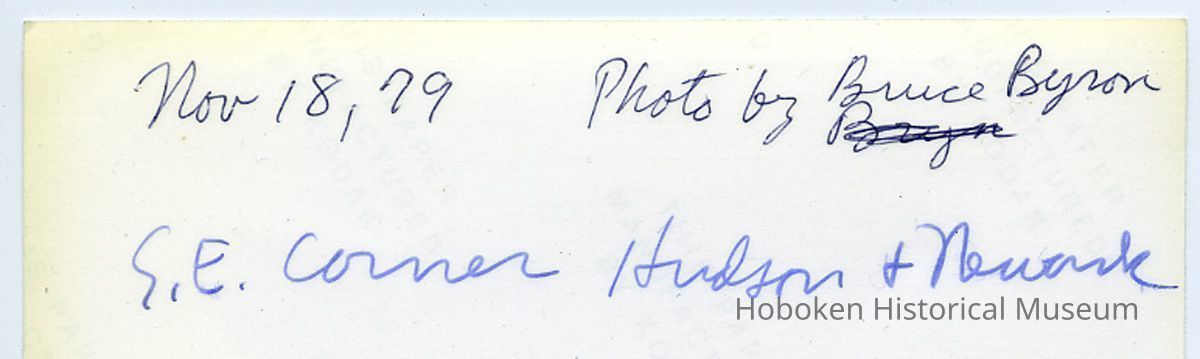 Nov 18, 79 Photo by Bruce Byron
S.E. Corner Hudson + Newark
Hoboken Historical Museum